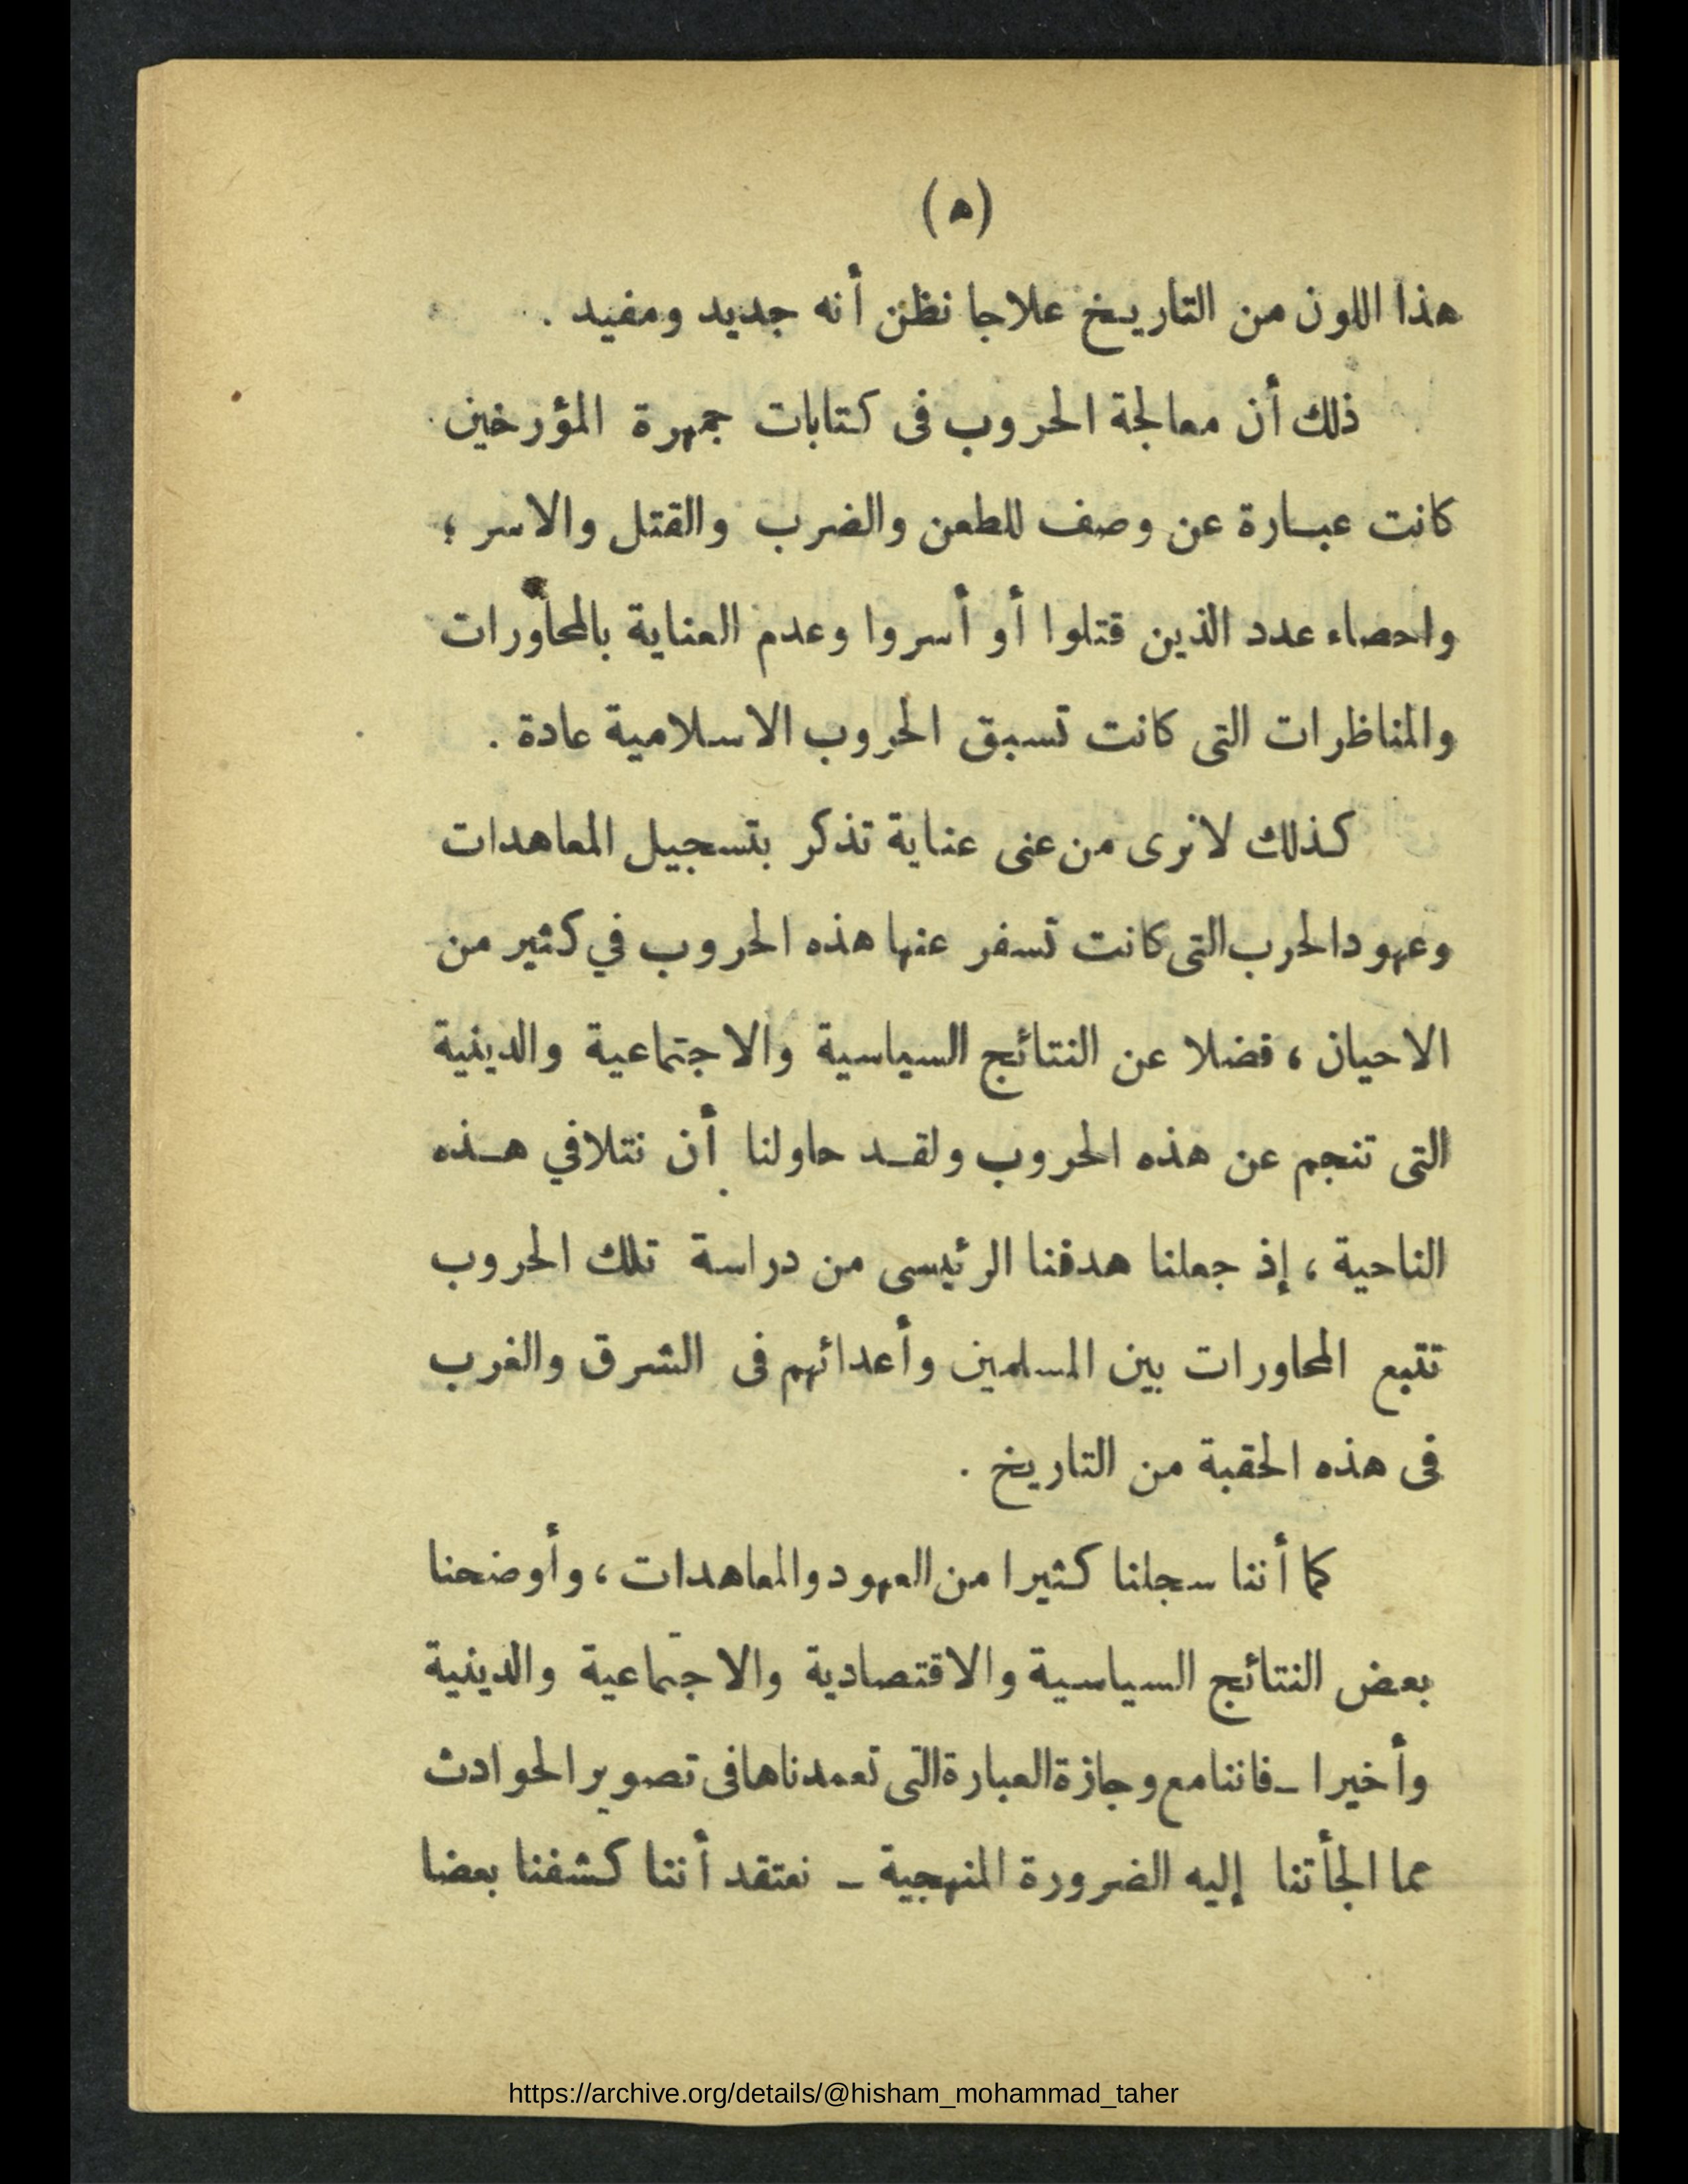 (ه)
هذا اللون من التاريخ علاجا نظن أنه جديد ومفيد .
ذلك أن معالجة الحروب فى كتابات جمهرة المؤرخين
كانت عبارة عن وصف للطعن والضرب والقتل والاسر ؛
واحصاء عدد الذين قتلوا أو أسروا وعدم العناية بالمحاورات
والمناظرات التى كانت تسبق الحروب الاسلامية عادة .
كذلك لانرى من عنى عناية تذكر بتسجيل المعاهدات
وعهود الحرب التى كانت تسفر عنها هذه الحروب في كثير من
الاحيان ، فضلا عن النتائج السياسية والاجتماعية والدينية
التى تنجم عن هذه الحروب ولقد حاولنا أن نتلافي هذه
الناحية ، إذ جعلنا هدفنا الرئيسى من دراسة تلك الحروب
تتبع المحاورات بين المسلمين وأعدائهم فى الشرق والغرب
فى هذه الحقبة من التاريخ .
كما أننا سجلنا كثيرا من العهود والمعاهدات ، وأوضحنا
بعض النتائج السياسية والاقتصادية والاجتماعية والدينية
وأخيرا ــ فاننا مع وجازة العبارة التى تعمدناها فى تصوير الحوادث
مما الجأتنا إليه الضرورة المنهجية ــ نعتقد أننا كشفنا بعضا
https://archive.org/details/@hisham_mohammad_taher